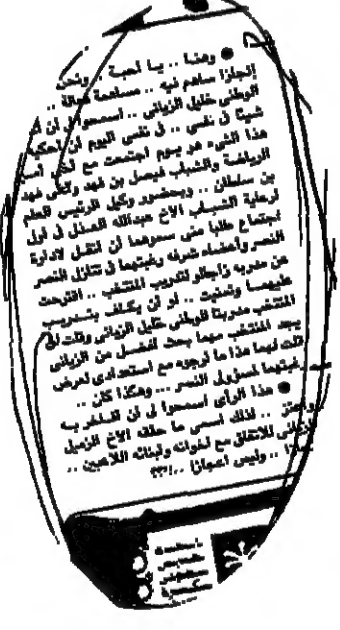 ● وهنا .. يا أحبة .. ونحن
إنجازا ساهم فيه .. مساهمة فعالة ..
الوطنى خليل الزيانى .. أسمحوا لى أن
شيئا فى نفسى .. فى نفسى اليوم أن أحكيه
هذا الشىء هو يوم أجتمعت مع
الرياضة والشباب فيصل بن فهد
بن سلطان .. وبحضور وكيل الرئيس العام
لرعاية الشباب الأخ عبدالله العذل فى أول
اجتماع طلبا منى سموهما أن انقل لادارة
النصر وأعضاء شرفه رغبتهما فى تنازل النصر
عن مدربه زاجالو لتدريب المنتخب .. اقترحت
عليهما وتمنيت .. لو أن يكلف بتدريب
المنتخب مدربنا الوطنى خليل الزيانى وقلت
يجد المنتخب مهما بحث أفضل من الزيانى
قلت لهما هذا ما أرجوه مع أستعدادى لعرض
رغبتهما لمسؤولى النصر ... وهكذا كان ..
● هذا الرأى أسمحوا لى أن افاخر به
وأعتز .. لذلك اسمى ما حققه الأخ الزميل
الزيانى للاتفاق مع أخوانه وأبنائه اللاعبين ..
.. وليس أعجازا ..!؟؟